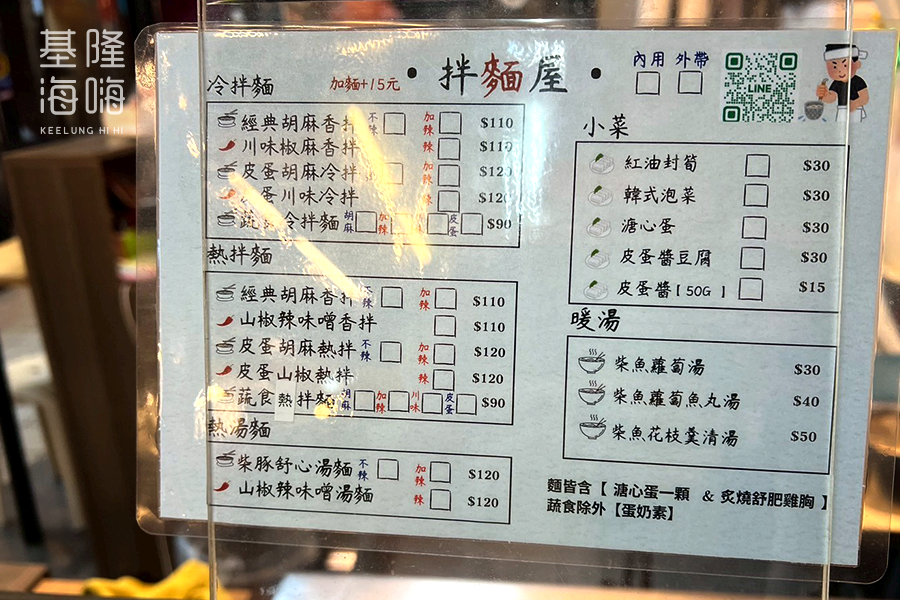 基隆
海嗨
KEELUNG HI HI
• 拌麵屋 •
內用 外帶
LINE
冷拌麵 加麵+15元
經典胡麻香拌 不辣 加辣 $110
川味椒麻香拌 辣 $110
皮蛋胡麻冷拌 加辣 $120
蛋川味冷拌 辣 $120
蔬 冷拌麵 胡麻 加辣 皮蛋 $90
熱拌麵
經典胡麻香拌 不辣 加辣 $110
山椒辣味噌香拌 $110
皮蛋胡麻熱拌 不辣 加辣 $120
皮蛋山椒熱拌 辣 $120
蔬食熱拌麵 胡麻 加辣 川味 皮蛋 $90
熱湯麵
柴豚舒心湯麵 不辣 加辣 $120
山椒辣味噌湯麵 辣 $120
小菜
紅油封筍 $30
韓式泡菜 $30
溏心蛋 $30
皮蛋醬豆腐 $30
皮蛋醬[50G] $15
暖湯
柴魚蘿蔔湯 $30
柴魚蘿蔔魚丸湯 $40
柴魚花枝羹清湯 $50
麵皆含【 溏心蛋一顆 & 炙燒舒肥雞胸 】
蔬食除外【蛋奶素】